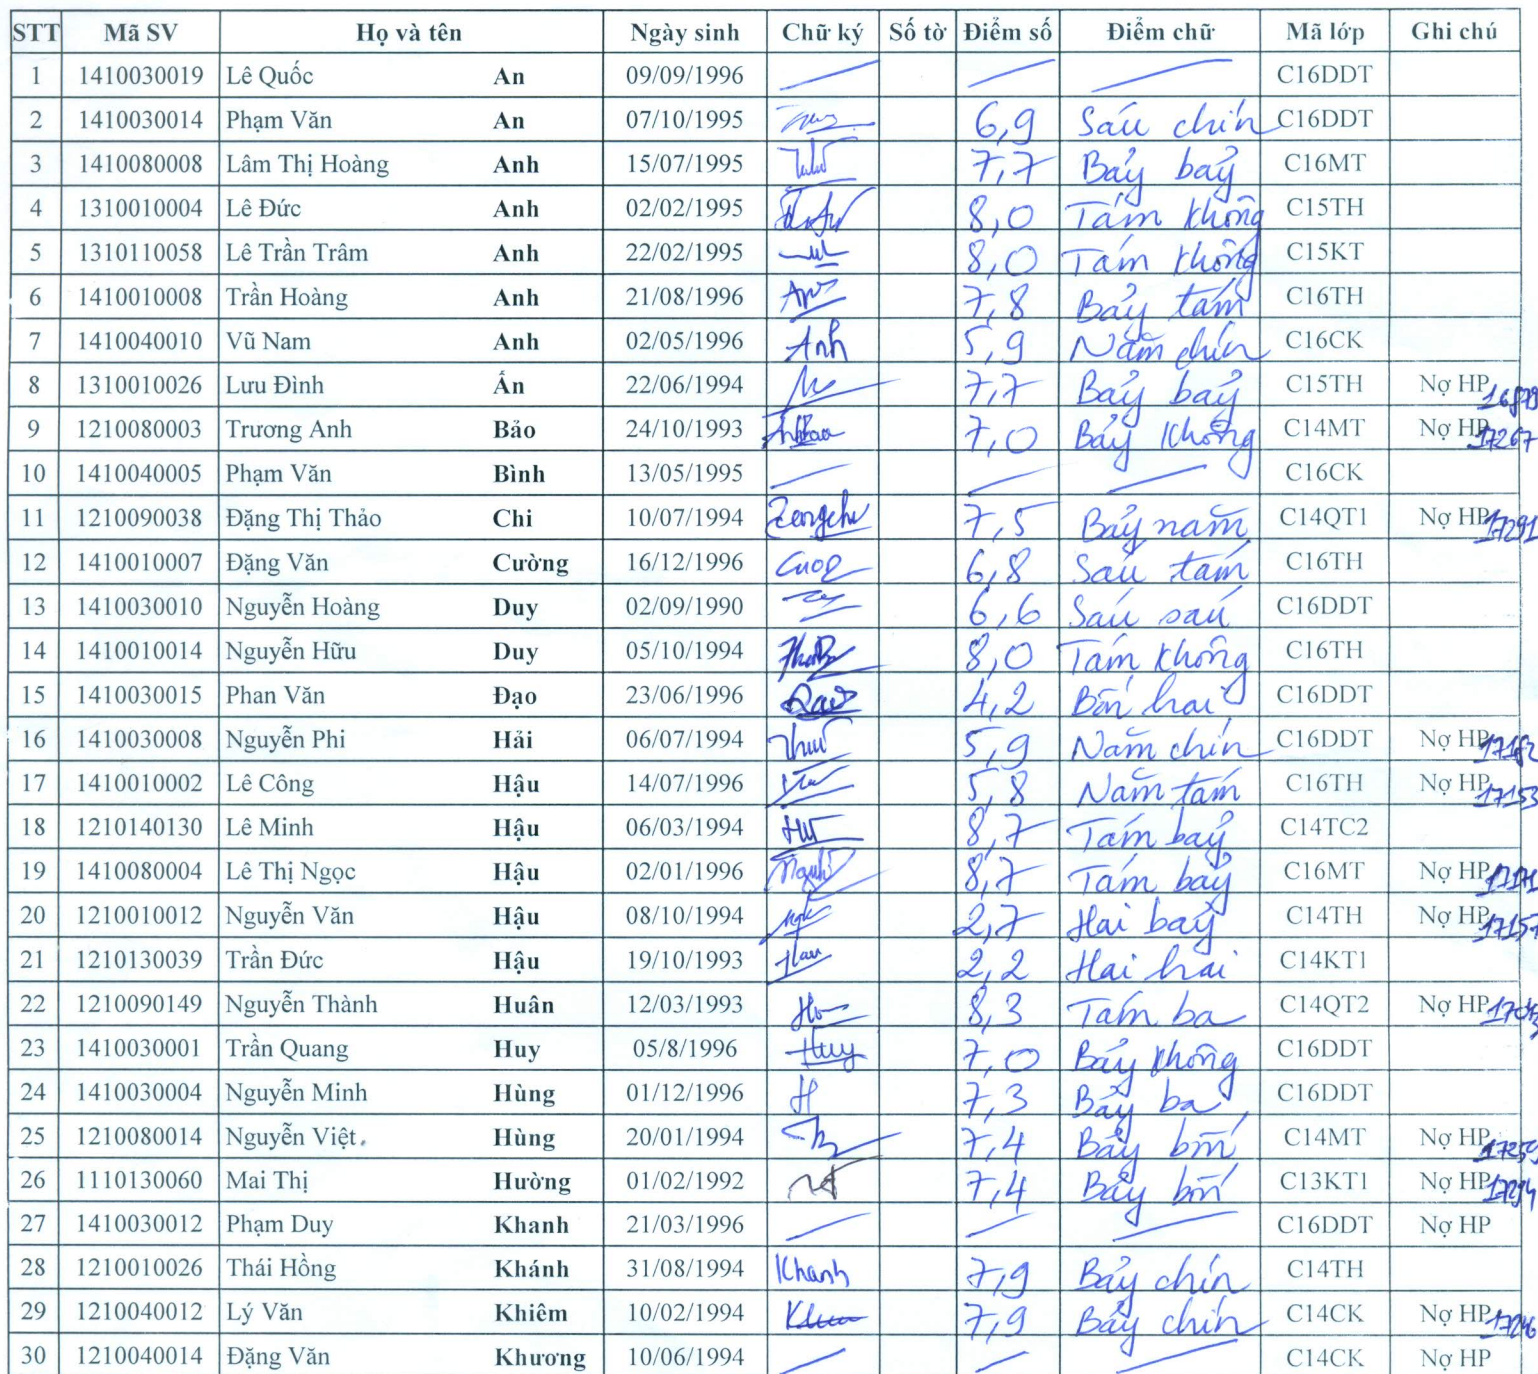 STT Mã SV Họ và tên Ngày sinh Chữ ký Số tờ Điểm số Điểm chữ Mã lớp Ghi chú
1 1410030019 Lê Quốc An 09/09/1996 C16DDT
2 1410030014 Phạm Văn An 07/10/1995 6,9 Sáu chín C16DDT
3 1410080008 Lâm Thị Hoàng Anh 15/07/1995 7,7 Bảy bảy C16MT
4 1310010004 Lê Đức Anh 02/02/1995 8,0 Tám không C15TH
5 1310110058 Lê Trần Trâm Anh 22/02/1995 8,0 Tám không C15KT
6 1410010008 Trần Hoàng Anh 21/08/1996 7,8 Bảy tám C16TH
7 1410040010 Vũ Nam Anh 02/05/1996 Anh 5,9 Năm chín C16CK
8 1310010026 Lưu Đình Ấn 22/06/1994 7,7 Bảy bảy C15TH Nợ HP
9 1210080003 Trương Anh Bảo 24/10/1993 7,0 Bảy không C14MT Nợ HP 17267
10 1410040005 Phạm Văn Bình 13/05/1995 C16CK
11 1210090038 Đặng Thị Thảo Chi 10/07/1994 7,5 Bảy năm C14QT1 Nợ HP 17291
12 1410010007 Đặng Văn Cường 16/12/1996 6,8 Sáu tám C16TH
13 1410030010 Nguyễn Hoàng Duy 02/09/1990 6,6 Sáu sáu C16DDT
14 1410010014 Nguyễn Hữu Duy 05/10/1994 8,0 Tám không C16TH
15 1410030015 Phan Văn Đạo 23/06/1996 4,2 Bốn hai C16DDT
16 1410030008 Nguyễn Phi Hải 06/07/1994 5,9 Năm chín C16DDT Nợ HP
17 1410010002 Lê Công Hậu 14/07/1996 5,8 Năm tám C16TH Nợ HP 17153
18 1210140130 Lê Minh Hậu 06/03/1994 8,7 Tám bảy C14TC2
19 1410080004 Lê Thị Ngọc Hậu 02/01/1996 8,7 Tám bảy C16MT Nợ HP
20 1210010012 Nguyễn Văn Hậu 08/10/1994 2,7 Hai bảy C14TH Nợ HP 17157
21 1210130039 Trần Đức Hậu 19/10/1993 2,2 Hai hai C14KT1
22 1210090149 Nguyễn Thành Huân 12/03/1993 8,3 Tám ba C14QT2 Nợ HP
23 1410030001 Trần Quang Huy 05/8/1996 Huy 7,0 Bảy không C16DDT
24 1410030004 Nguyễn Minh Hùng 01/12/1996 H 7,3 Bảy ba C16DDT
25 1210080014 Nguyễn Việt Hùng 20/01/1994 7,4 Bảy bốn C14MT Nợ HP 17259
26 1110130060 Mai Thị Hường 01/02/1992 7,4 Bảy bốn C13KT1 Nợ HP 17294
27 1410030012 Phạm Duy Khanh 21/03/1996 C16DDT Nợ HP
28 1210010026 Thái Hồng Khánh 31/08/1994 Khanh 7,9 Bảy chín C14TH
29 1210040012 Lý Văn Khiêm 10/02/1994 7,9 Bảy chín C14CK Nợ HP
30 1210040014 Đặng Văn Khương 10/06/1994 C14CK Nợ HP